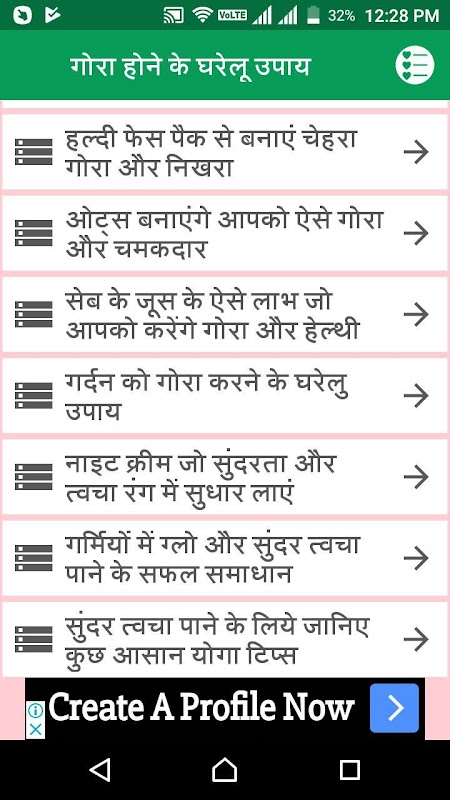 VoLTE 32% 12:28 PM
गोरा होने के घरेलू उपाय
हल्दी फेस पैक से बनाएं चेहरा
गोरा और निखरा
ओट्स बनाएंगे आपको ऐसे गोरा
और चमकदार
सेब के जूस के ऐसे लाभ जो
आपको करेंगे गोरा और हेल्थी
गर्दन को गोरा करने के घरेलु
उपाय
नाइट क्रीम जो सुंदरता और
त्वचा रंग में सुधार लाएं
गर्मियों में ग्लो और सुंदर त्वचा
पाने के सफल समाधान
सुंदर त्वचा पाने के लिये जानिए
कुछ आसान योगा टिप्स
Create A Profile Now